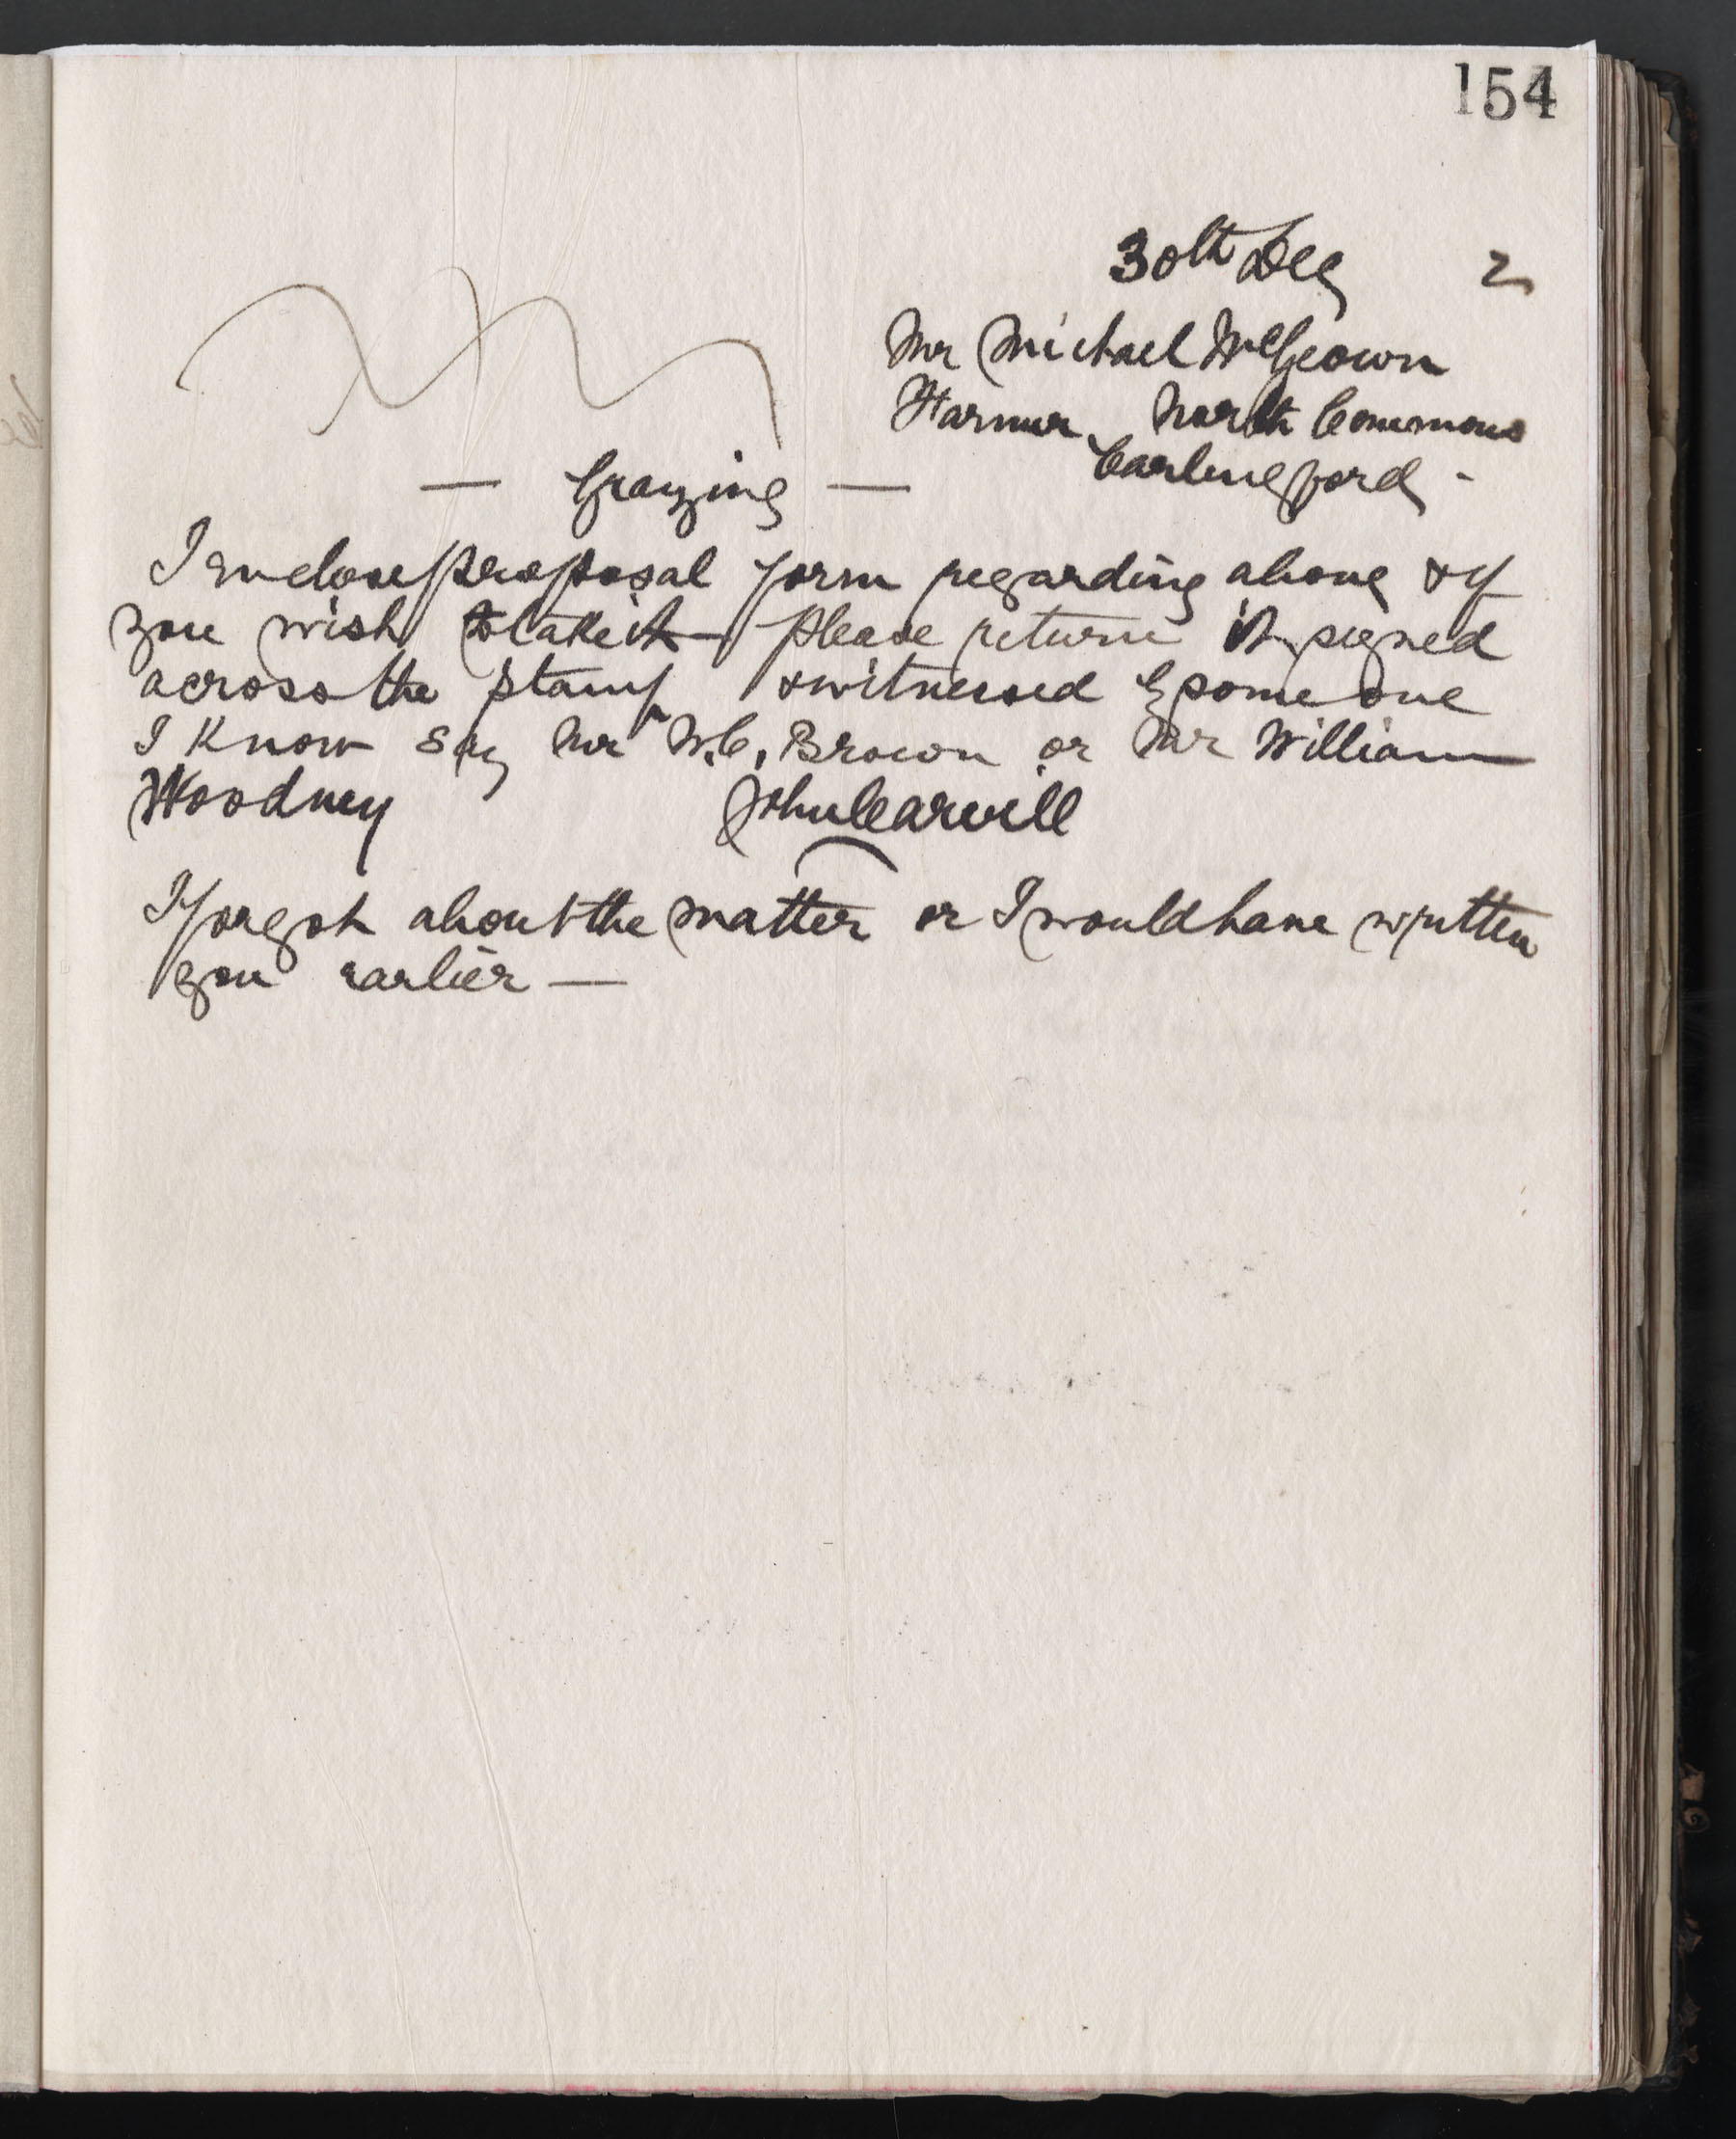 154
30th Dec 2
Mr Michael McGeown
Farmer, North Commons
Carlingford -
— Grazing —
I enclose proposal form regarding above & if
you wish to take it — please return it signed
across the stamp & witnessed by some one
I know say Mr W.C. Brown or Mr William
Woodney
John Carvill
I forgot about the matter or I would have written
you earlier —